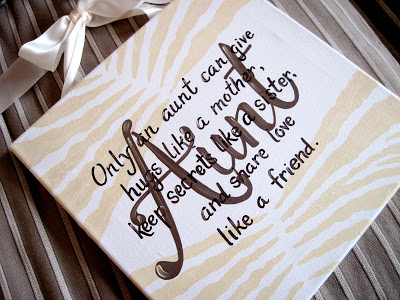 Only an aunt can give
hugs like a mother,
keep secrets like a sister,
and share love
like a friend.
Aunt